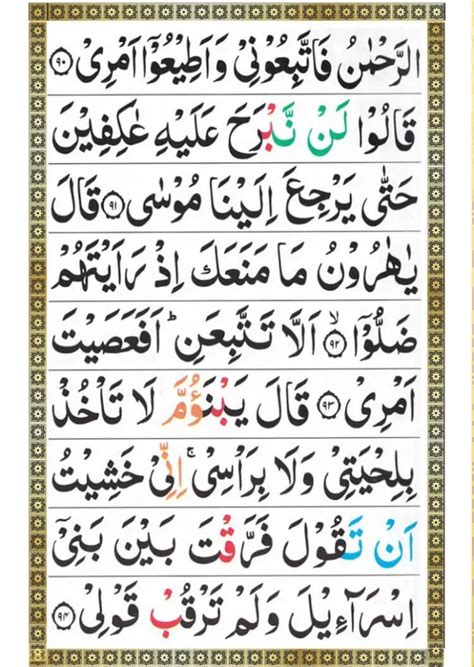 الرَّحْمٰنُ فَاتَّبِعُوْنِيْ وَاَطِيْعُوْۤا اَمْرِيْ ۝٩٠
قَالُوْا لَنْ نَّبْرَحَ عَلَيْهِ عٰكِفِيْنَ
حَتّٰى يَرْجِعَ اِلَيْنَا مُوْسٰى ۝٩١ قَالَ
يٰهٰرُوْنُ مَا مَنَعَكَ اِذْ رَاَيْتَهُمْ
ضَلُّوْۤا ۝٩٢ۙ اَلَّا تَتَّبِعَنِ ؕ اَفَعَصَيْتَ
اَمْرِيْ ۝٩٣ قَالَ يَبْنَؤُمَّ لَا تَاْخُذْ
بِلِحْيَتِيْ وَلَا بِرَاْسِيْ ۚ اِنِّيْ خَشِيْتُ
اَنْ تَقُوْلَ فَرَّقْتَ بَيْنَ بَنِيْۤ
اِسْرَآءِيْلَ وَلَمْ تَرْقُبْ قَوْلِيْ ۝٩٤